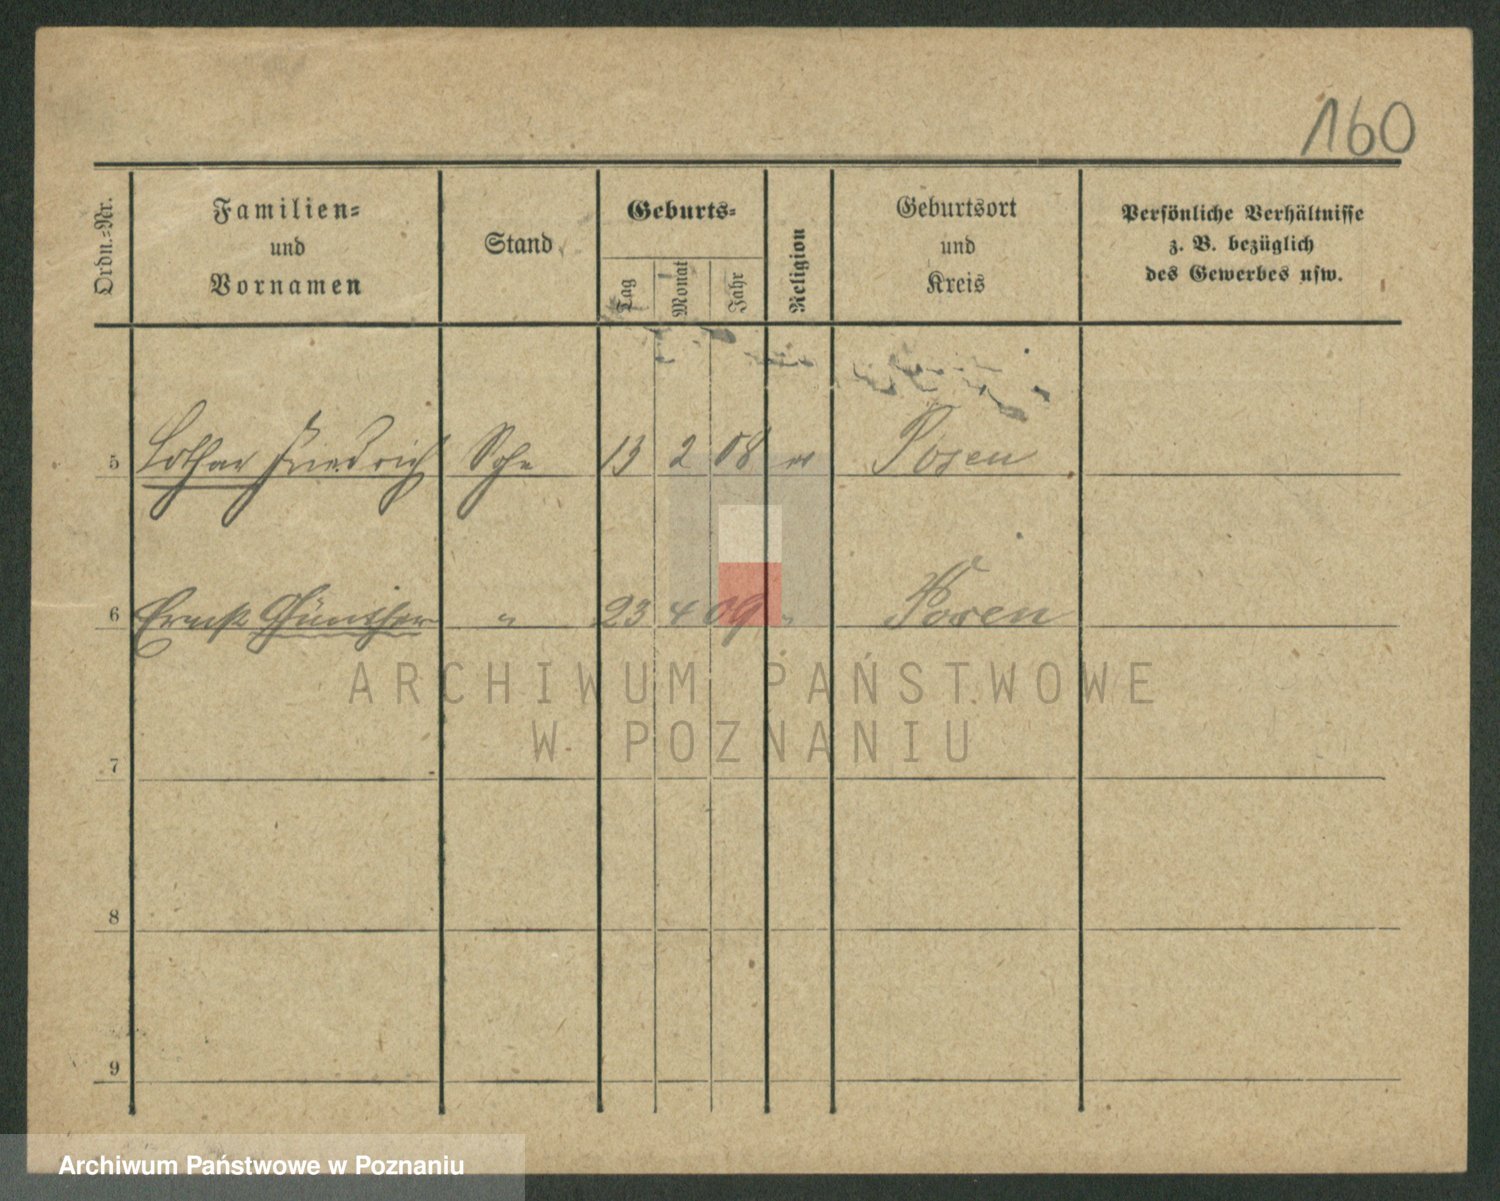 160
Ordn.=Nr.
Familien=
und
Vornamen
Stand
Geburts=
Tag
Monat
Jahr
Religion
Geburtsort
und
Kreis
Persönliche Verhältnisse
z. B. bezüglich
des Gewerbes usw.
5 Lothar Friedrich Sohn 13 2 08 Posen
6 Ernst Günther " 23 4 09 " Posen
7
8
9
ARCHIWUM PAŃSTWOWE
W POZNANIU
Archiwum Państwowe w Poznaniu